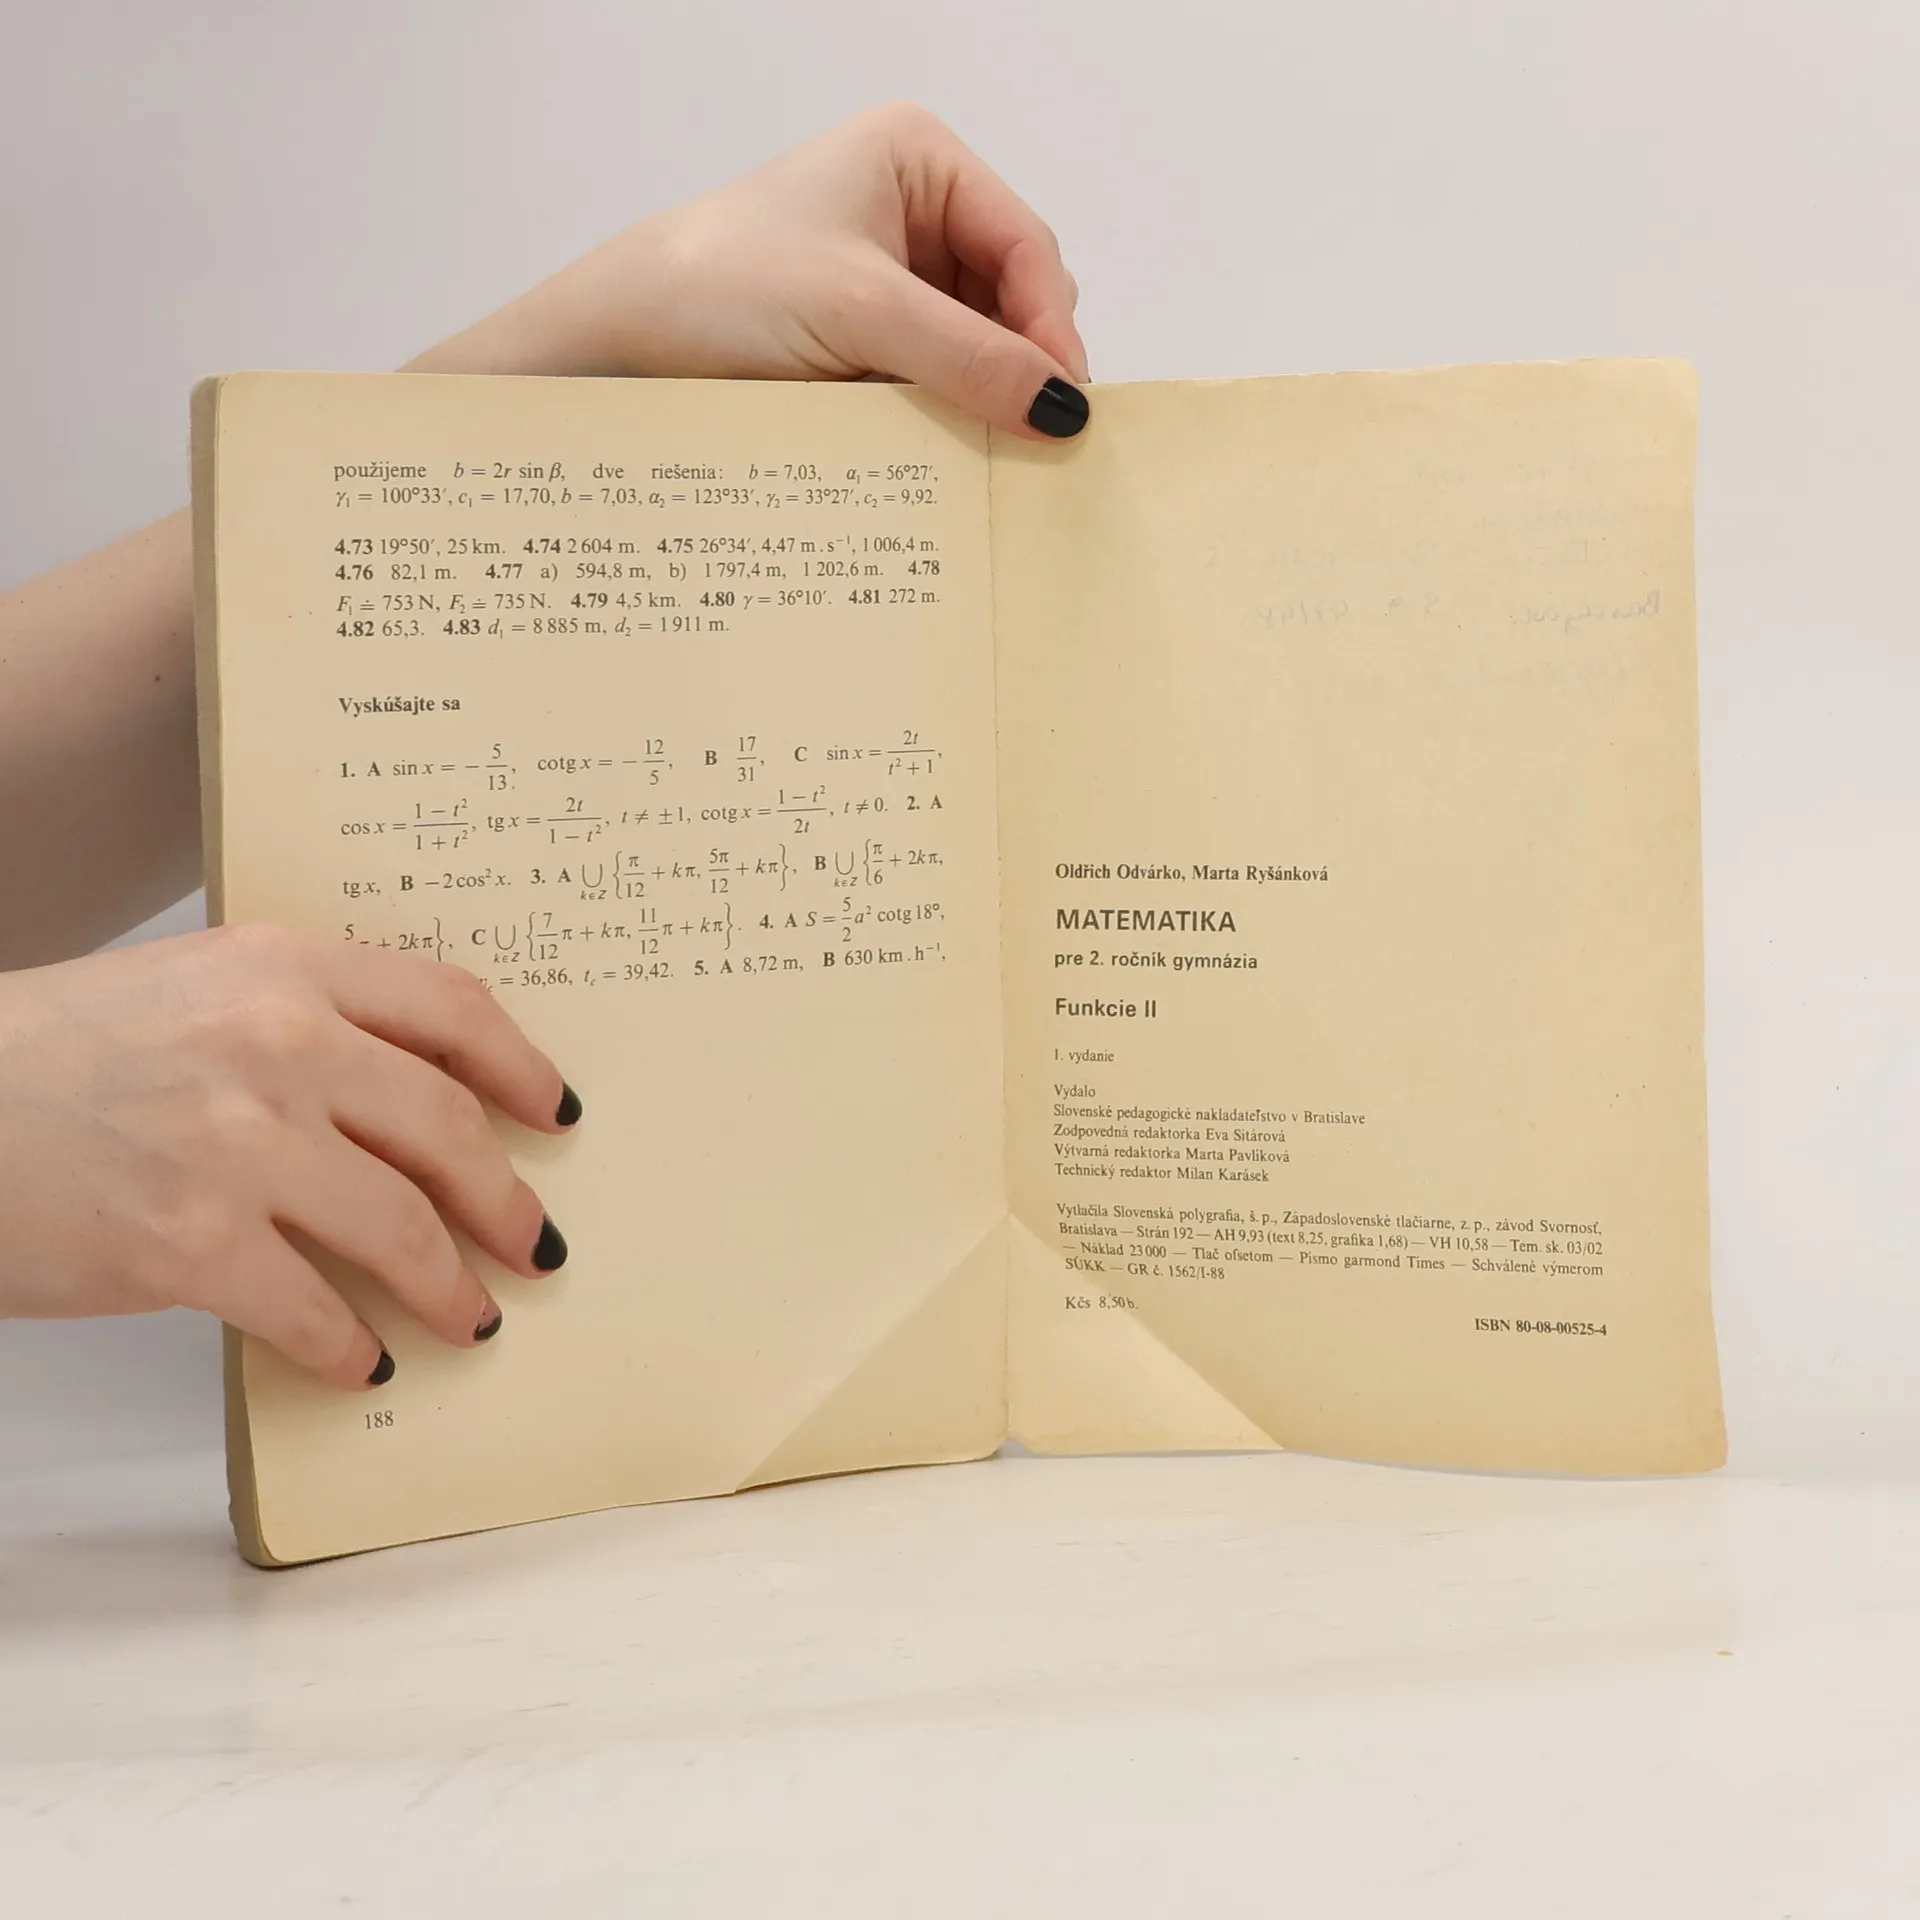 použijeme b = 2r sin β, dve riešenia: b = 7,03, α₁ = 56°27′,
γ₁ = 100°33′, c₁ = 17,70, b = 7,03, α₂ = 123°33′, γ₂ = 33°27′, c₂ = 9,92.
4.73 19°50′, 25 km. 4.74 2 604 m. 4.75 26°34′, 4,47 m.s⁻¹, 1 006,4 m.
4.76 82,1 m. 4.77 a) 594,8 m, b) 1 797,4 m, 1 202,6 m. 4.78
F₁ ≐ 753 N, F₂ ≐ 735 N. 4.79 4,5 km. 4.80 γ = 36°10′. 4.81 272 m.
4.82 65,3. 4.83 d₁ = 8 885 m, d₂ = 1 911 m.
Vyskúšajte sa
1. A sin x = −5/13, cotg x = −12/5, B 17/31, C sin x = 2t/(t² + 1),
cos x = (1 − t²)/(1 + t²), tg x = 2t/(1 − t²), t ≠ ±1, cotg x = (1 − t²)/2t, t ≠ 0. 2. A
tg x, B −2 cos² x. 3. A ⋃_{k∈Z} {π/12 + kπ, 5π/12 + kπ}, B ⋃_{k∈Z} {π/6 + 2kπ,
5 + 2kπ}, C ⋃_{k∈Z} {7/12 π + kπ, 11/12 π + kπ}. 4. A S = 5/2 a² cotg 18°,
= 36,86, t_c = 39,42. 5. A 8,72 m, B 630 km.h⁻¹,
188
Oldřich Odvárko, Marta Ryšánková
MATEMATIKA
pre 2. ročník gymnázia
Funkcie II
1. vydanie
Vydalo
Slovenské pedagogické nakladateľstvo v Bratislave
Zodpovedná redaktorka Eva Sitárová
Výtvarná redaktorka Marta Pavlíková
Technický redaktor Milan Karásek
Vytlačila Slovenská polygrafia, š. p., Západoslovenské tlačiarne, z. p., závod Svornosť,
Bratislava — Strán 192 — AH 9,93 (text 8,25, grafika 1,68) — VH 10,58 — Tem. sk. 03/02
— Náklad 23 000 — Tlač ofsetom — Písmo garmond Times — Schválené výmerom
SÚKK — GR č. 1562/I-88
Kčs 8,50 b.
ISBN 80-08-00525-4